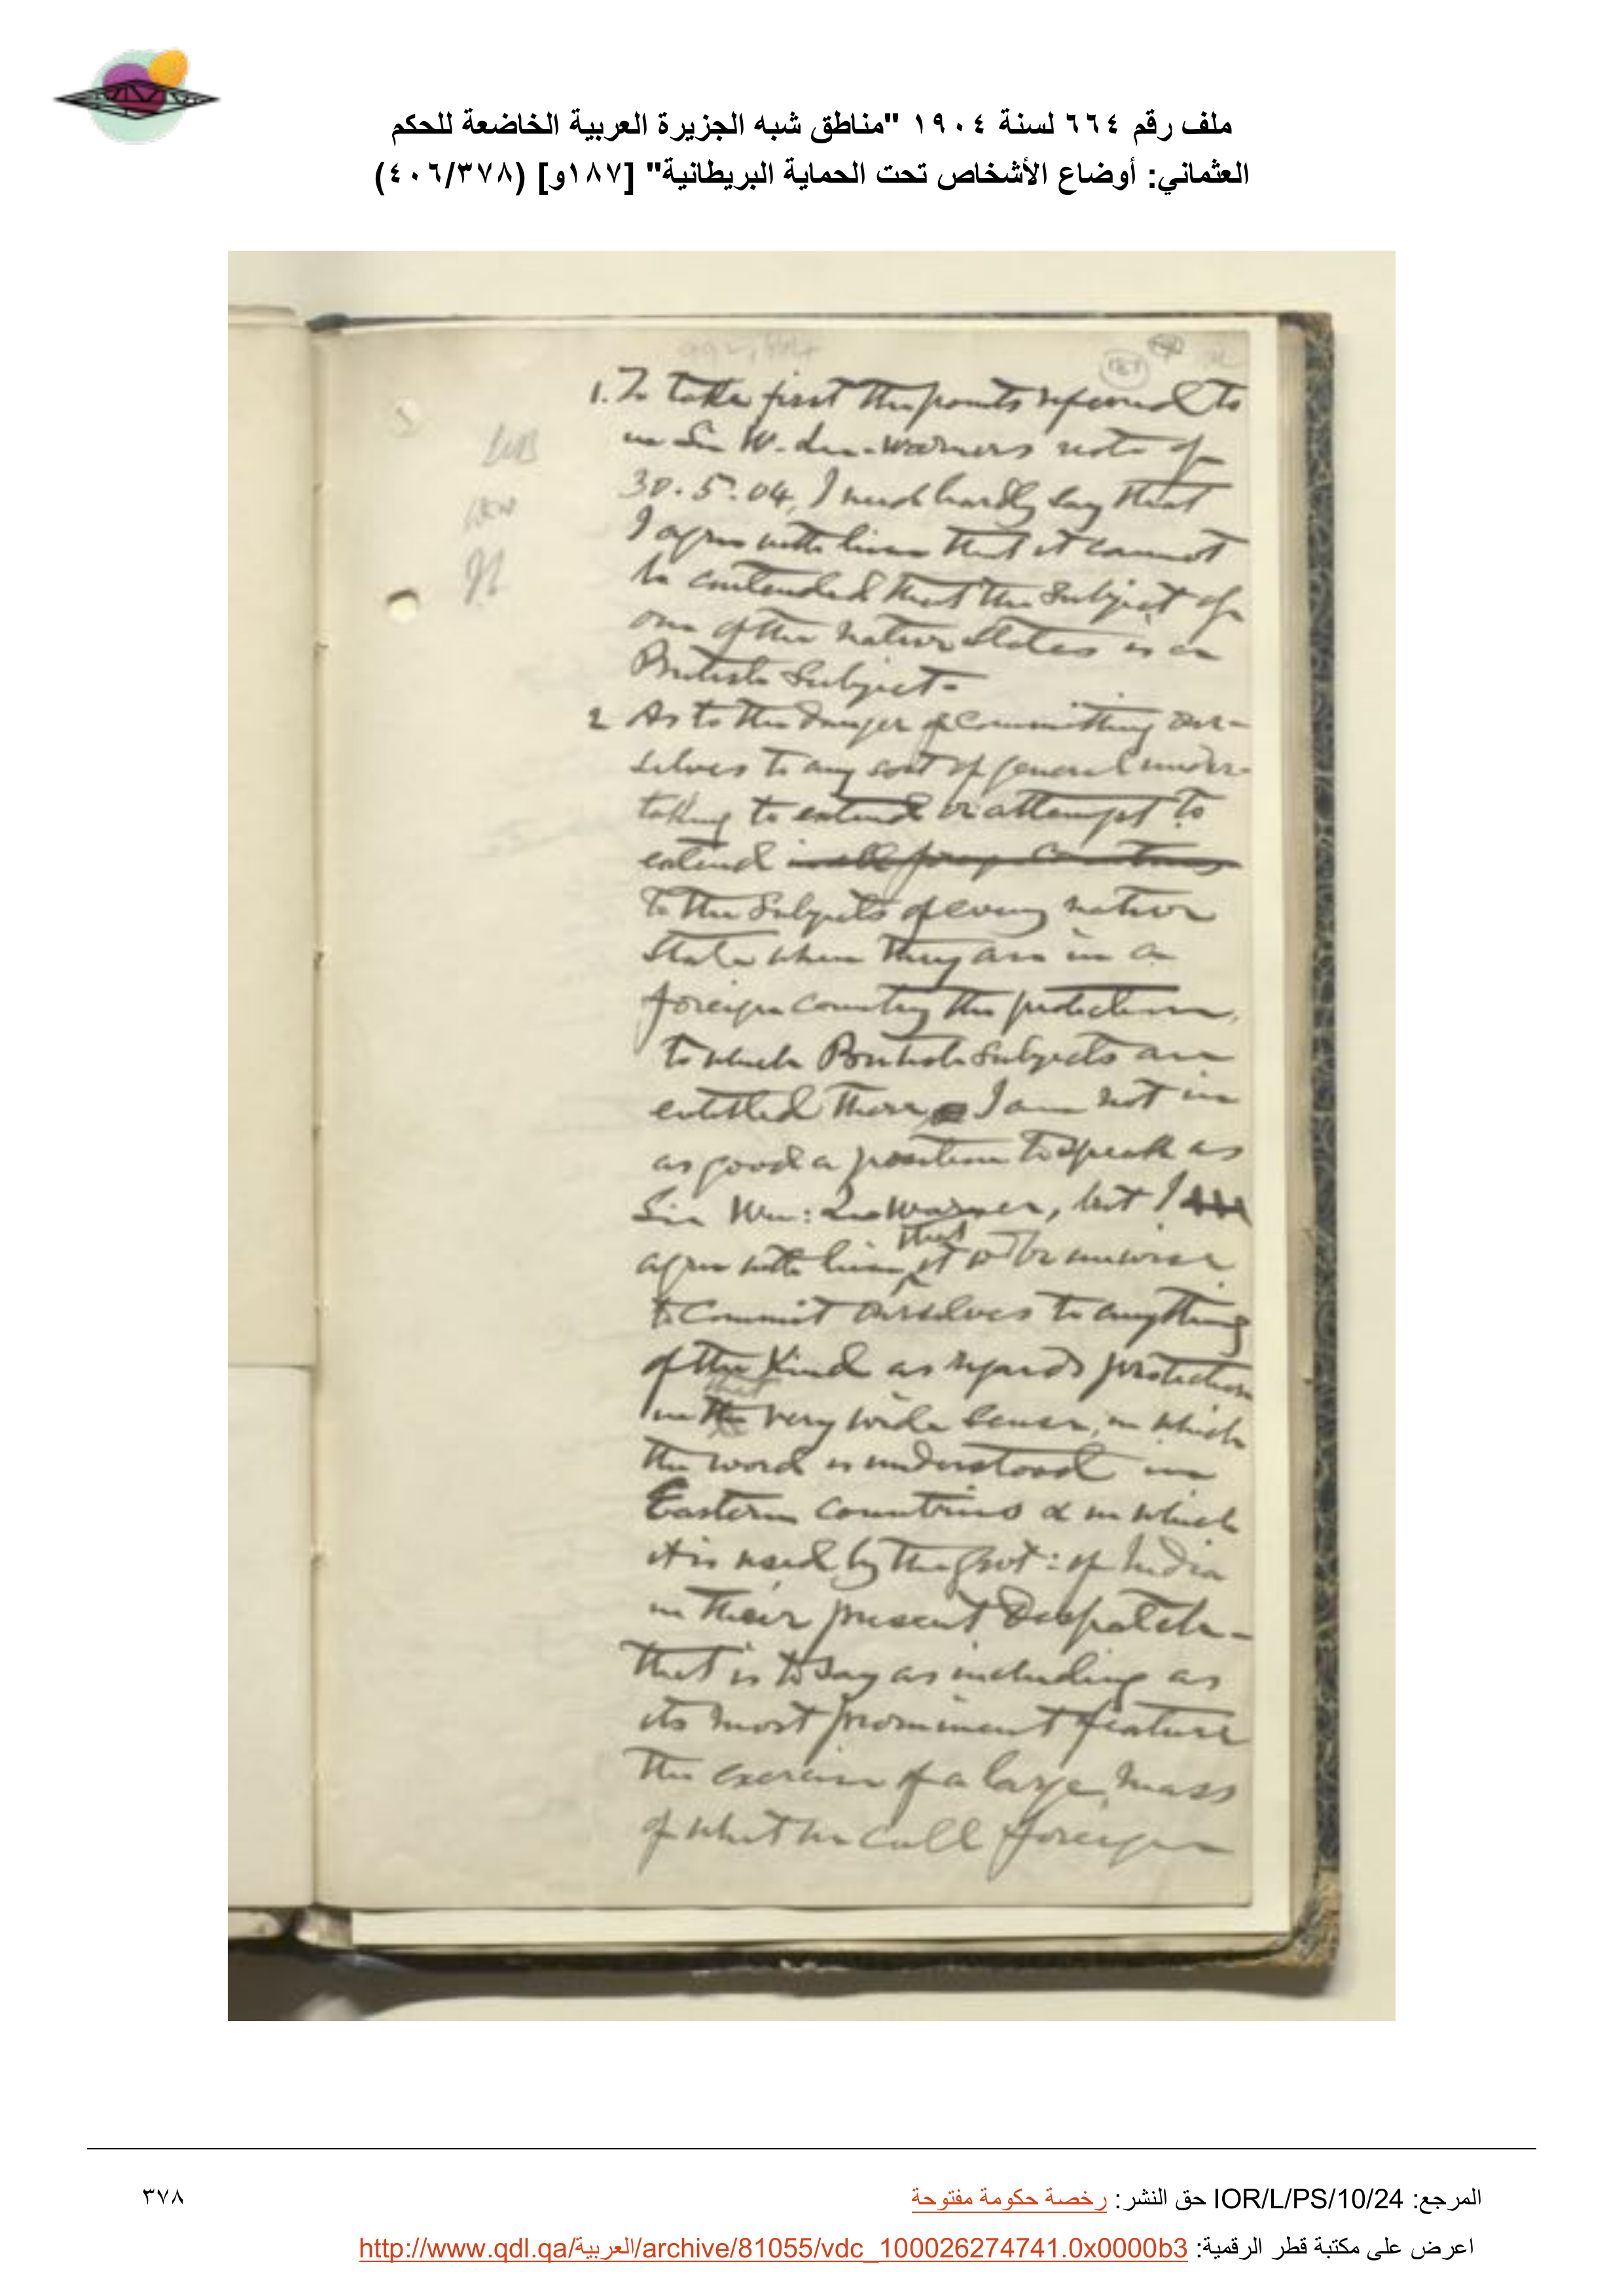 ملف رقم ٦٦٤ لسنة ١٩٠٤ "مناطق شبه الجزيرة العربية الخاضعة للحكم
العثماني: أوضاع الأشخاص تحت الحماية البريطانية" [١٨٧و] (٤٠٦/٣٧٨)
187
1. To take first the points referred to
in Sir W. Lee-Warners note of
30.5.04, I need hardly say that
I agree with him that it cannot
be contended that the subject of
one of the native states is a
British Subject-
2 As to the danger of committing our-
selves to any sort of general under-
taking to extend or attempt to
extend in all foreign countries
to the Subjects of every native
State when they are in a
foreign country the protection,
to which British Subjects are
entitled there I am not in
as good a position to speak as
Sir Wm: Lee Warner, but I
agree with him that it wd be unwise
to commit ourselves to anything
of the kind as regards protection
in that very wide sense, in which
the word is understood in
Eastern countries & in which
it is used by the Govt: of India
in their present Despatch-
that is to say as including as
its most prominent feature
the exercise of a large mass
of what we call foreign
المرجع: IOR/L/PS/10/24 حق النشر: رخصة حكومة مفتوحة
٣٧٨
اعرض على مكتبة قطر الرقمية: http://www.qdl.qa/العربية/archive/81055/vdc_100026274741.0x0000b3